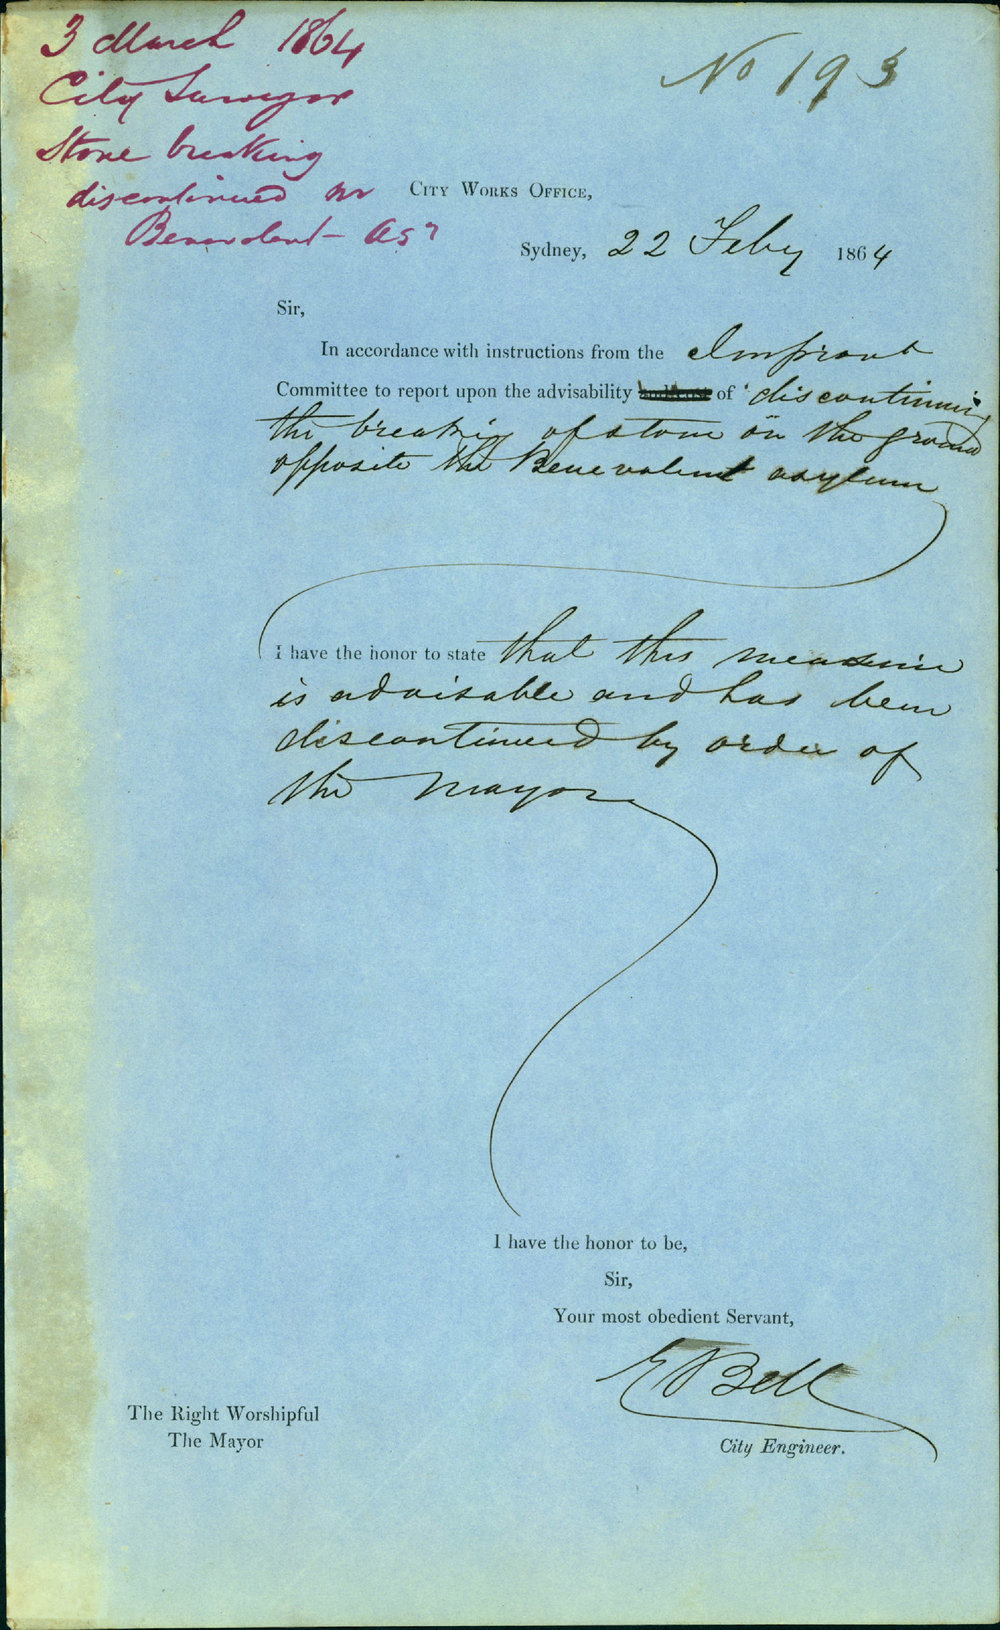 3 March 1864
City Surveyor
Stone breaking
discontinued nr
Benevolent Asm
No 193
City Works Office,
Sydney, 22 Feby 1864
Sir,
In accordance with instructions from the Improvt
Committee to report upon the advisability and cost of discontinuing
the breaking of stone on the ground
opposite the Benevolent asylum
I have the honor to state that this measure
is advisable and has been
discontinued by order of
the Mayor
I have the honor to be,
Sir,
Your most obedient Servant,
E Bell
City Engineer.
The Right Worshipful
The Mayor